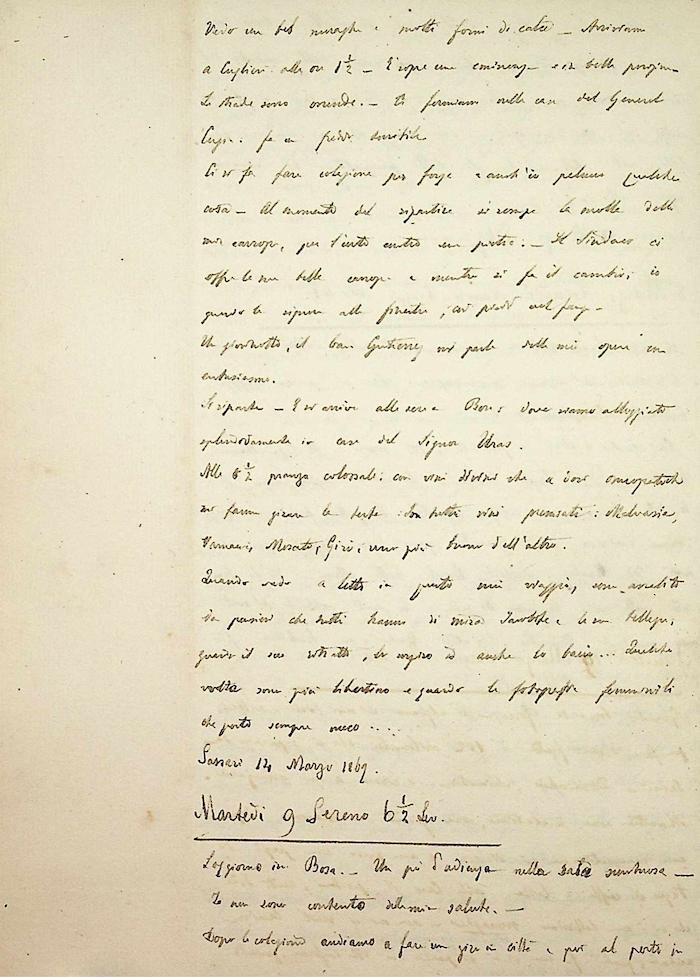 Vedo un bel nuraghe e molti forni di calce — Arriviam
a Cuglieri alle ore 1 ½ — È sopra una eminenza e in bella
Le strade sono orrende. — Ci fermiam nella casa del General
fa un freddo terribile
Ci si fa fare colezione per forza e anch'io pelucco qualche
cosa — Al momento del ripartire si rompe la molla della
mia carrozza, per l'urto contro una pietra. — Il Sindaco ci
offre la sua bella carrozza e mentre si fa il cambio, io
guardo le signore alle finestre, coi piedi nel fango —
Un giovinotto, il Cav. Gutierrez mi parla delle mie opere con
entusiasmo.
Si riparte — E si arriva alla sera a Bosa: dove siamo alloggiati
splendidamente in casa del Signor Uras.
Alle 6 ½ pranzo colossale: con vini divini che a dosi omeopatiche
mi fanno girare la testa. Son tutti vini premiati: Malvasia,
Moscato, Girò, uno più buono dell'altro.
Quando vado a letto in questo mio viaggio, sono assalito
da pensieri che tutti hanno di mira e la sua bellezza,
guardo il suo ritratto, lo sospiro ed anche lo bacio... Qualche
volta sono più libertino e guardo le fotografie femminili
che porto sempre meco ....
Sassari 14 Marzo 1869.
Martedì 9 Sereno 6 ½ Lev.
Soggiorno in Bosa. — Un po' d'udienza nella sala suntuosa —
Io non sono contento della mia salute. —
Dopo la colezione andiamo a fare un giro in città e poi al porto in